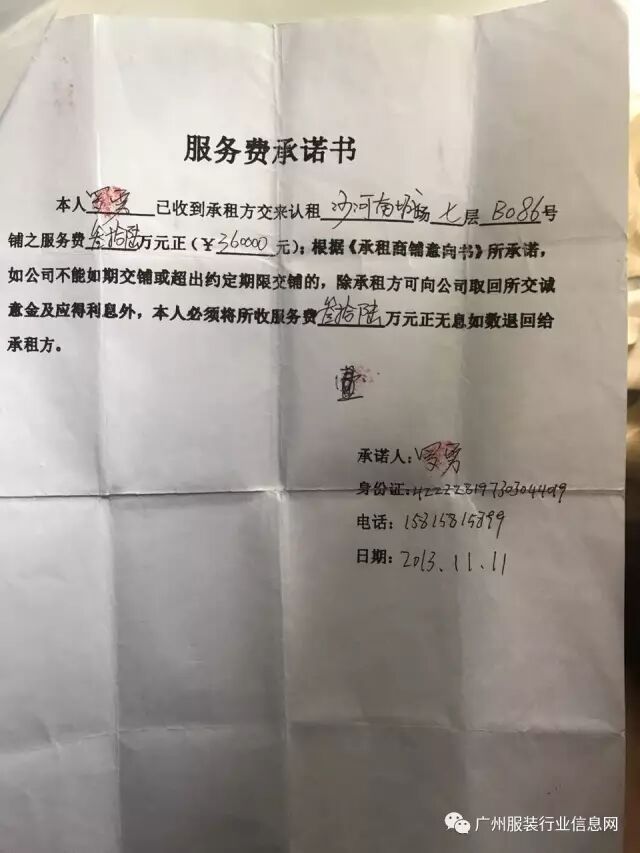 服务费承诺书
本人罗勇已收到承租方交来认租沙河南城场七层B086号
铺之服务费叁拾陆万元正（￥360000元）；根据《承租商铺意向书》所承诺，
如公司不能如期交铺或超出约定期限交铺的，除承租方可向公司取回所交诚
意金及应得利息外，本人必须将所收服务费叁拾陆万元正无息如数退回给
承租方。
承诺人：罗勇
身份证：422228197303044019
电话：15815815899
日期：2013.11.11
广州服装行业信息网